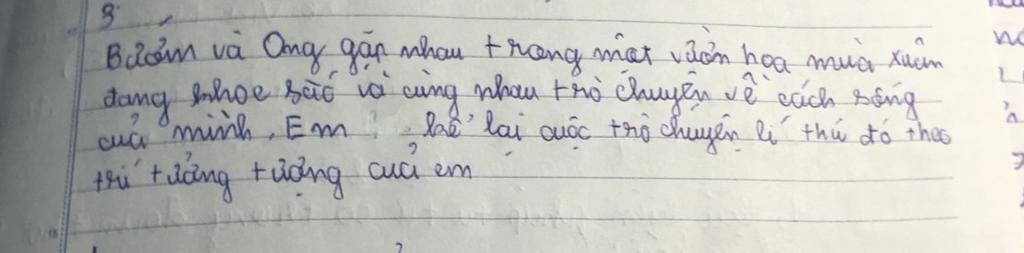 3
Bướm và Ong gặp nhau trong một vườn hoa mùa xuân
đang khoe sắc và cùng nhau trò chuyện về cách sống
của mình. Em kể lại cuộc trò chuyện lí thú đó theo
trí tưởng tượng của em